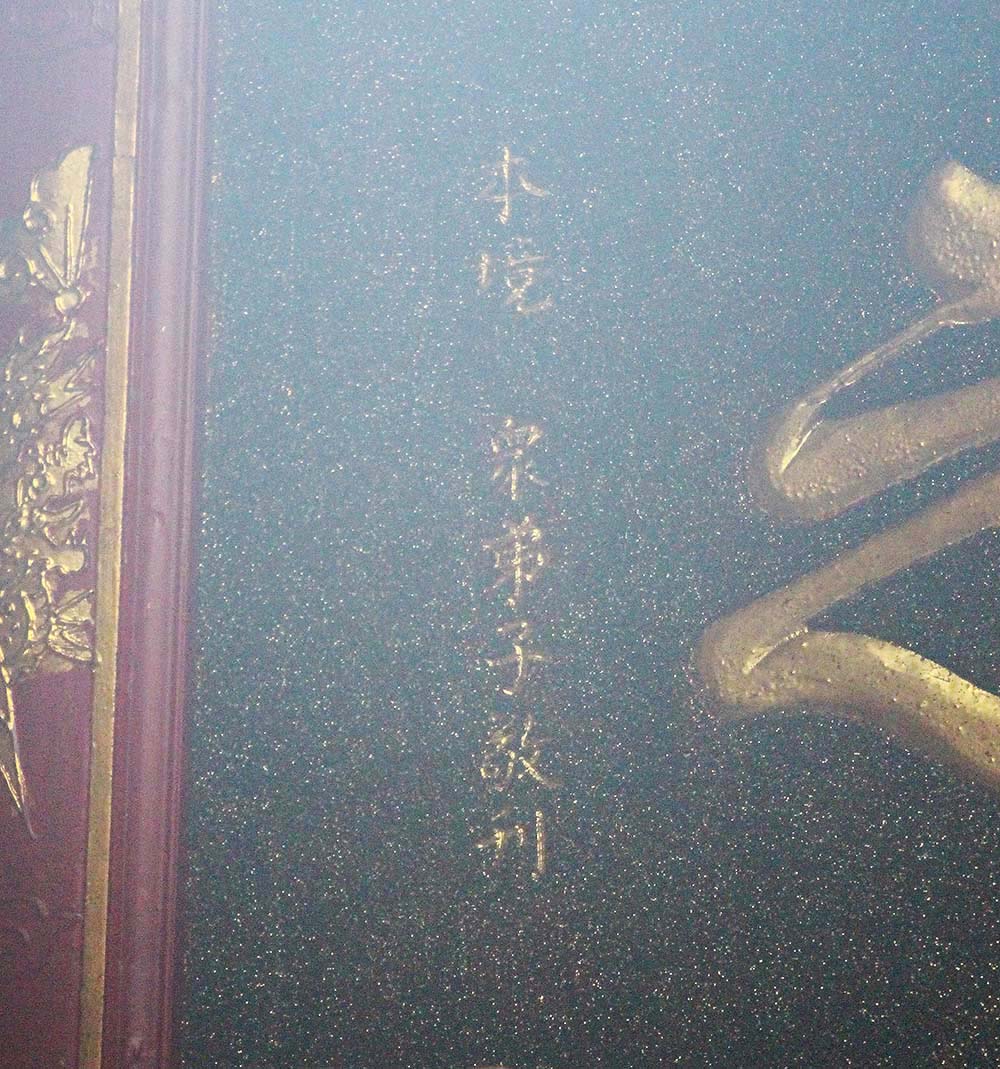 本境　眾弟子敬刊